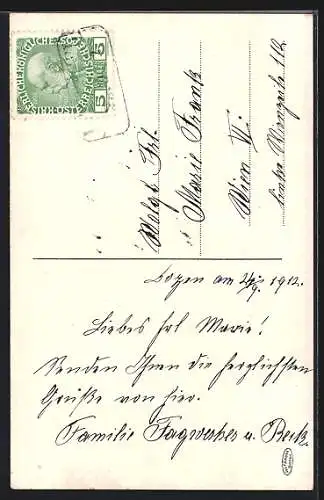 KAISERLICHE KÖNIGLICHE ÖSTERREICHISCHE POST
5 5
Frl.
Marie Frank
Wien VI.
Linke Wienzeile 112
Bozen am 24/9. 1912.
Liebes Frl Marie!
Senden Ihnen die herzlichsten
Grüße von hier.
Familie Fagwerker u. Beck.